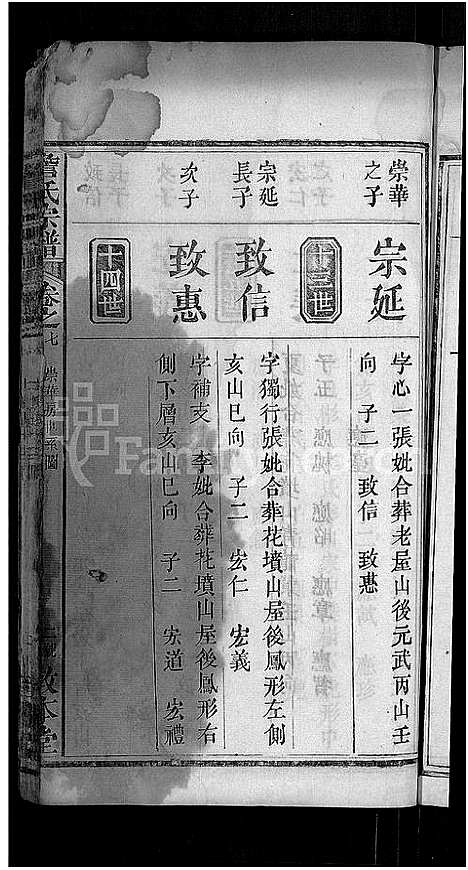 崇華
之子
宗延
字心一張妣合葬老屋山後元武丙山壬
向 子二 致信 致惠
十三世
宗延
長子
致信
字獨行張妣合葬花墳山屋後鳳形左側
亥山巳向 子二 宏仁 宏義
次子
致惠
字補支 李妣合葬花墳山屋後鳳形右
側下層亥山巳向 子二 宏道 宏禮
十四世
詹氏宗譜
卷之七
敦本堂